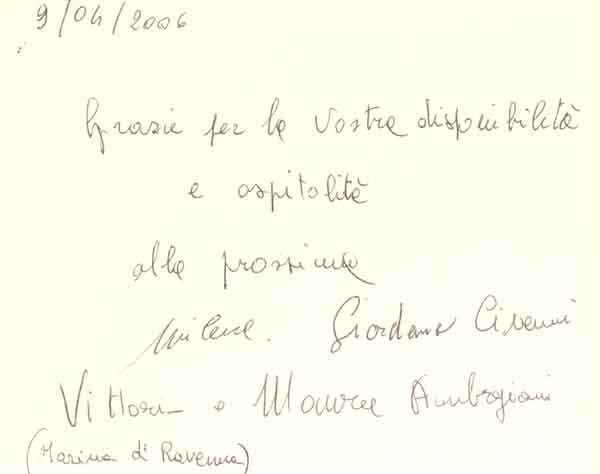 9/04/2006
Grazie per la Vostra disponibilità
e ospitalità
alla prossima
Milena. Giordano
Vittoria e Maura Ambrogiani
(Marina di Ravenna)